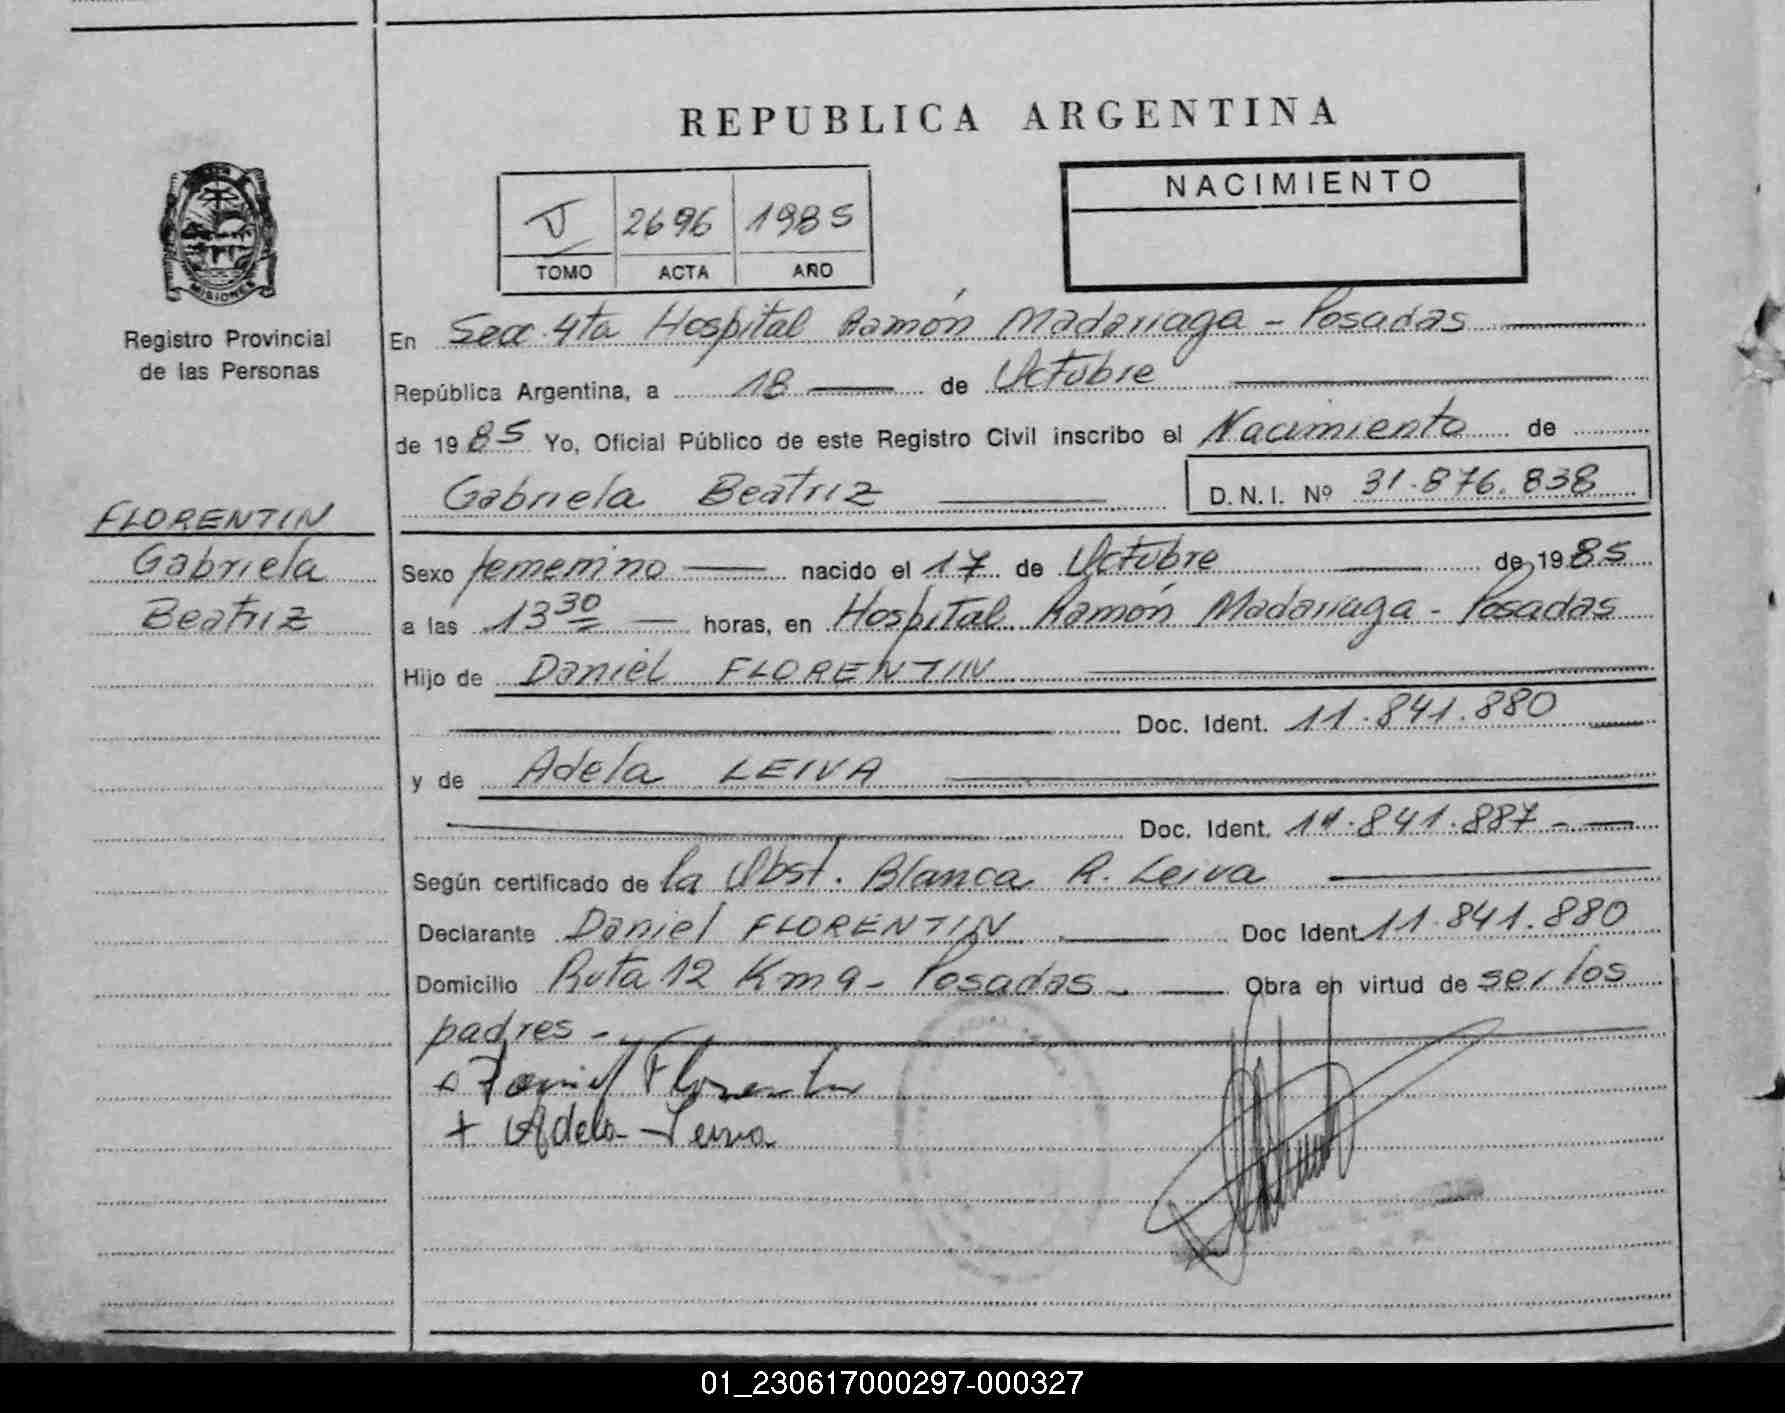 REPUBLICA ARGENTINA
MISIONES
Registro Provincial
de las Personas
V 2696 1985
TOMO ACTA AÑO
NACIMIENTO
En Secc. 4ta Hospital Ramón Madariaga - Posadas
República Argentina, a 18 de Octubre
de 1985 Yo, Oficial Público de este Registro Civil inscribo el Nacimiento de
Gabriela Beatriz D.N.I. Nº 31.876.838
FLORENTIN
Gabriela
Beatriz
Sexo femenino nacido el 17 de Octubre de 1985
a las 13 30 horas, en Hospital Ramón Madariaga - Posadas
Hijo de Daniel FLORENTIN
Doc. Ident. 11.841.880
y de Adela LEIVA
Doc. Ident. 11.841.887 -
Según certificado de la Obst. Blanca R. Leiva
Declarante Daniel FLORENTIN Doc Ident. 11.841.880
Domicilio Ruta 12 Km 9 - Posadas - Obra en virtud de ser los
padres -
Daniel Florentin
+ Adela Leiva
01_230617000297-000327